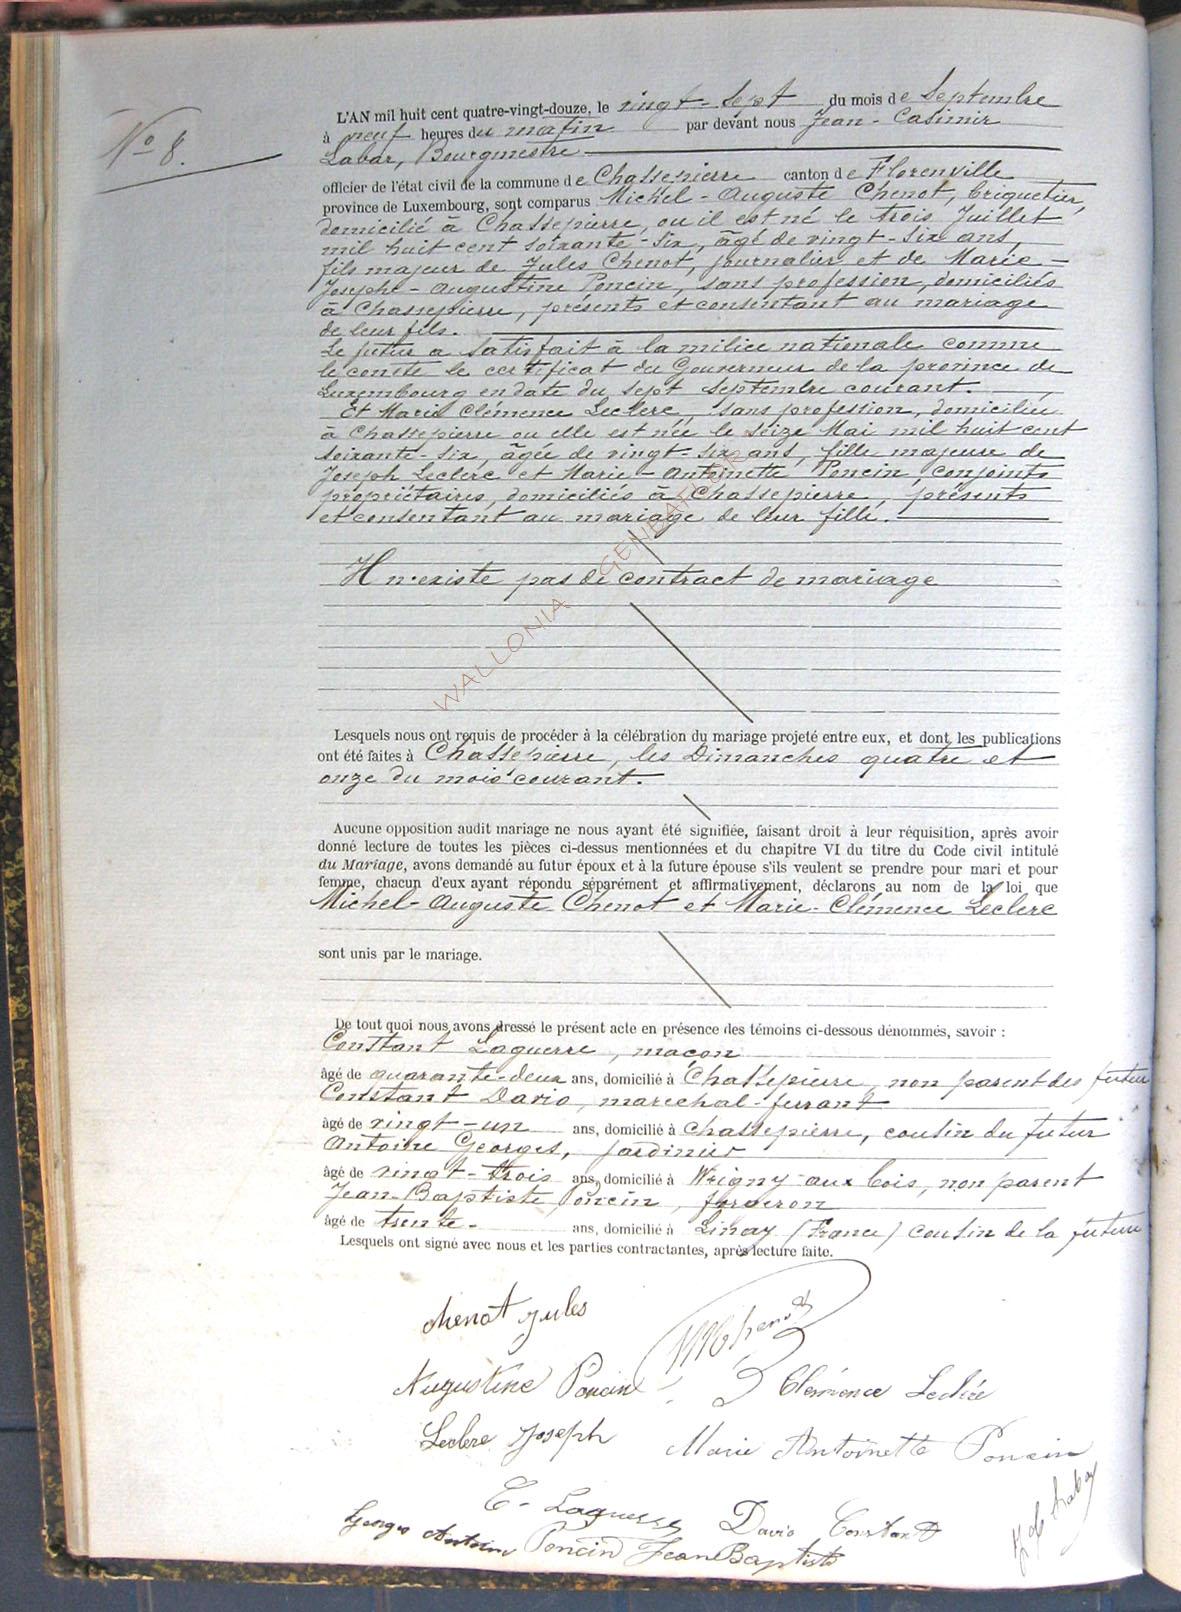 N° 8.
L'AN mil huit cent quatre-vingt-douze, le vingt-sept du mois de Septembre
à neuf heures du matin par devant nous Jean-Casimir
Labar, Bourgmestre
officier de l'état civil de la commune de Chassepierre canton de Florenville
province de Luxembourg, sont comparus Michel-Auguste Chenot, briquetier,
domicilié à Chassepierre, ou il est né le trois Juillet
mil huit cent soixante-six, âgé de vingt-six ans,
fils majeur de Jules Chenot, journalier et de Marie-
Josephe-Augustine Poncin, sans profession, domiciliés
à Chassepierre, présents et consentant au mariage
de leur fils.
Le futur a satisfait à la milice nationale comme
le conste le certificat du Gouverneur de la province de
Luxembourg en date du sept septembre courant.
Et Marie Clémence Leclerc, sans profession, domiciliée
à Chassepierre ou elle est née le seize Mai mil huit cent
soixante-six, âgée de vingt-six ans, fille majeure de
Joseph Leclerc et Marie-Antoinette Poncin, conjoints
propriétaires, domiciliés à Chassepierre, présents
et consentant au mariage de leur fille.
Il n'existe pas de contract de mariage
WALLONIA GENBAFLUR
Lesquels nous ont requis de procéder à la célébration du mariage projeté entre eux, et dont les publications
ont été faites à Chassepierre, les Dimanches quatre et
onze du mois courant.
Aucune opposition audit mariage ne nous ayant été signifiée, faisant droit à leur réquisition, après avoir
donné lecture de toutes les pièces ci-dessus mentionnées et du chapitre VI du titre du Code civil intitulé
du Mariage, avons demandé au futur époux et à la future épouse s'ils veulent se prendre pour mari et pour
femme, chacun d'eux ayant répondu séparément et affirmativement, déclarons au nom de la loi que
Michel-Auguste Chenot et Marie-Clémence Leclerc
sont unis par le mariage.
De tout quoi nous avons dressé le présent acte en présence des témoins ci-dessous dénommés, savoir :
Constant Laguerre, maçon
âgé de quarante-deux ans, domicilié à Chassepierre, non parent des futur
Constant Dario, marechal-ferrant
âgé de vingt-un ans, domicilié à Chassepierre, cousin du futur
Antoine Georges, jardinier
âgé de vingt-trois ans, domicilié à Wrigny-aux bois, non parent
Jean-Baptiste Poncin, forgeron
âgé de trente- ans, domicilié à Linay (France) cousin de la future
Lesquels ont signé avec nous et les parties contractantes, après lecture faite.
chenot Jules
MChenot
Augustine Poncin
Clémence Leclèe
Leclerc Joseph
Marie Antoinette Poncin
C- Laguerre
Dario Constant
Georges Antoin
Poncin Jean Baptiste
J C Labar